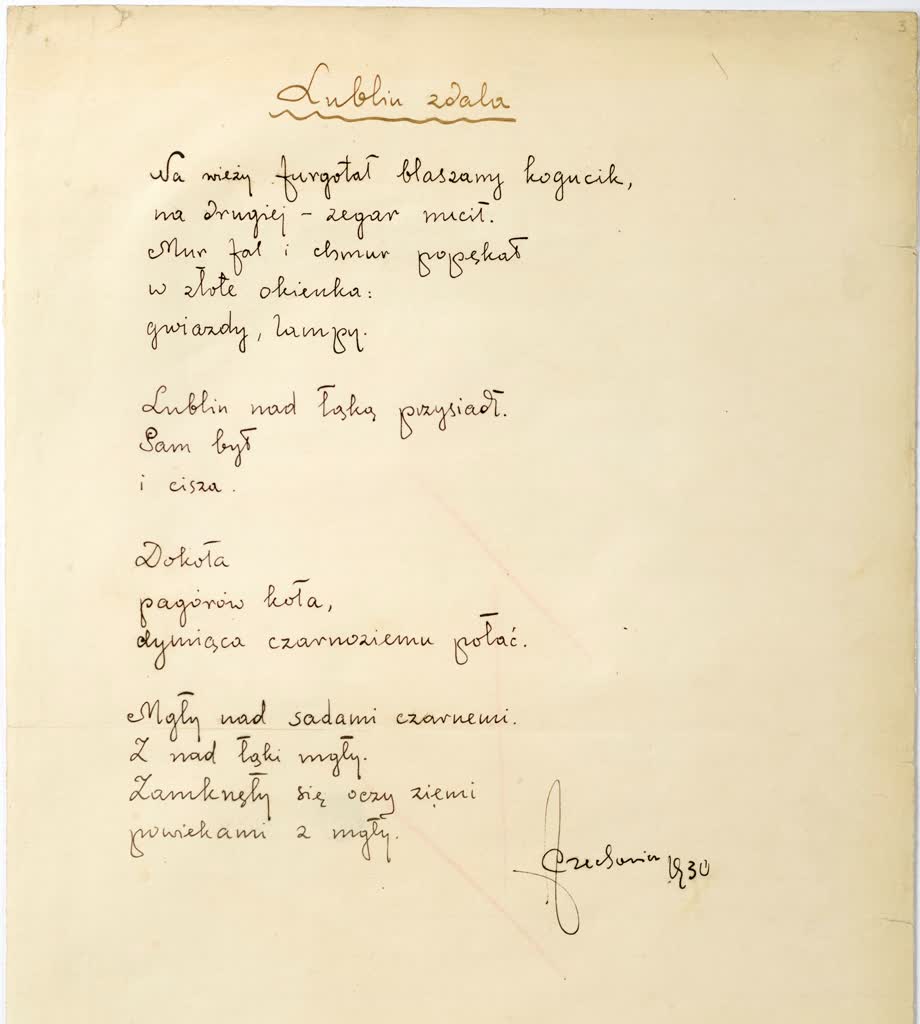 3
Lublin zdala
Na wieży furgotał blaszany kogucik,
na drugiej – zegar nucił.
Mur fal i chmur popękał
w złote okienka:
gwiazdy, lampy.
Lublin nad łąką przysiadł.
Sam był
i cisza.
Dokoła
pagórów koła,
dymiąca czarnoziemu połać.
Mgły nad sadami czarnemi.
Z nad łąki mgły.
Zamknęły się oczy ziemi
powiekami z mgły.
JCzechowicz 1930